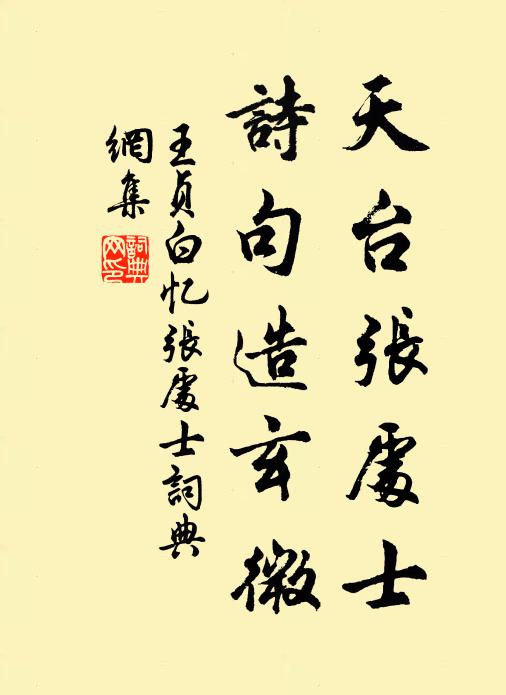 天台張處士
詩句造玄微
王貞白忆張處士詞典
網集
詞典网印